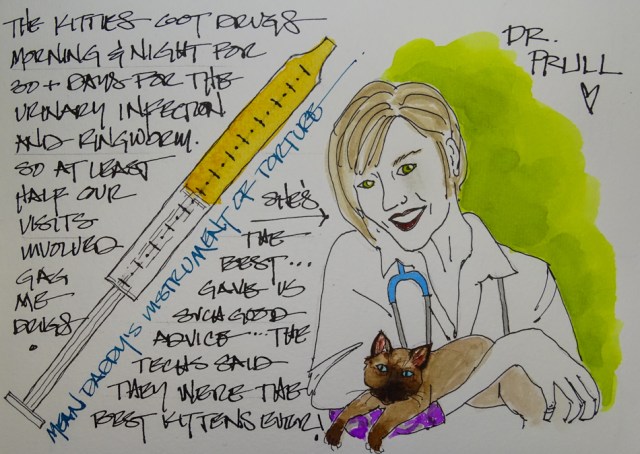 THE KITTIES GOT DRUGS
MORNING & NIGHT FOR
30+ DAYS FOR THE
URINARY INFECTION
AND RINGWORM.
SO AT LEAST
HALF OUR
VISITS
INVOLVED
GAG
ME
DRUGS.
MEAN DADDY'S INSTRUMENT OF TORTURE
SHE'S
THE
BEST...
GAVE US
SUCH GOOD
ADVICE...THE
TECHS SAID
THEY WERE THE
BEST KITTENS EVER!
DR.
PRULL